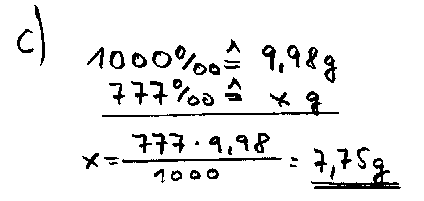 c)
1000‰ ≙ 9,98g
777‰ ≙ x g
x = 777 · 9,98 / 1000 = 7,75g